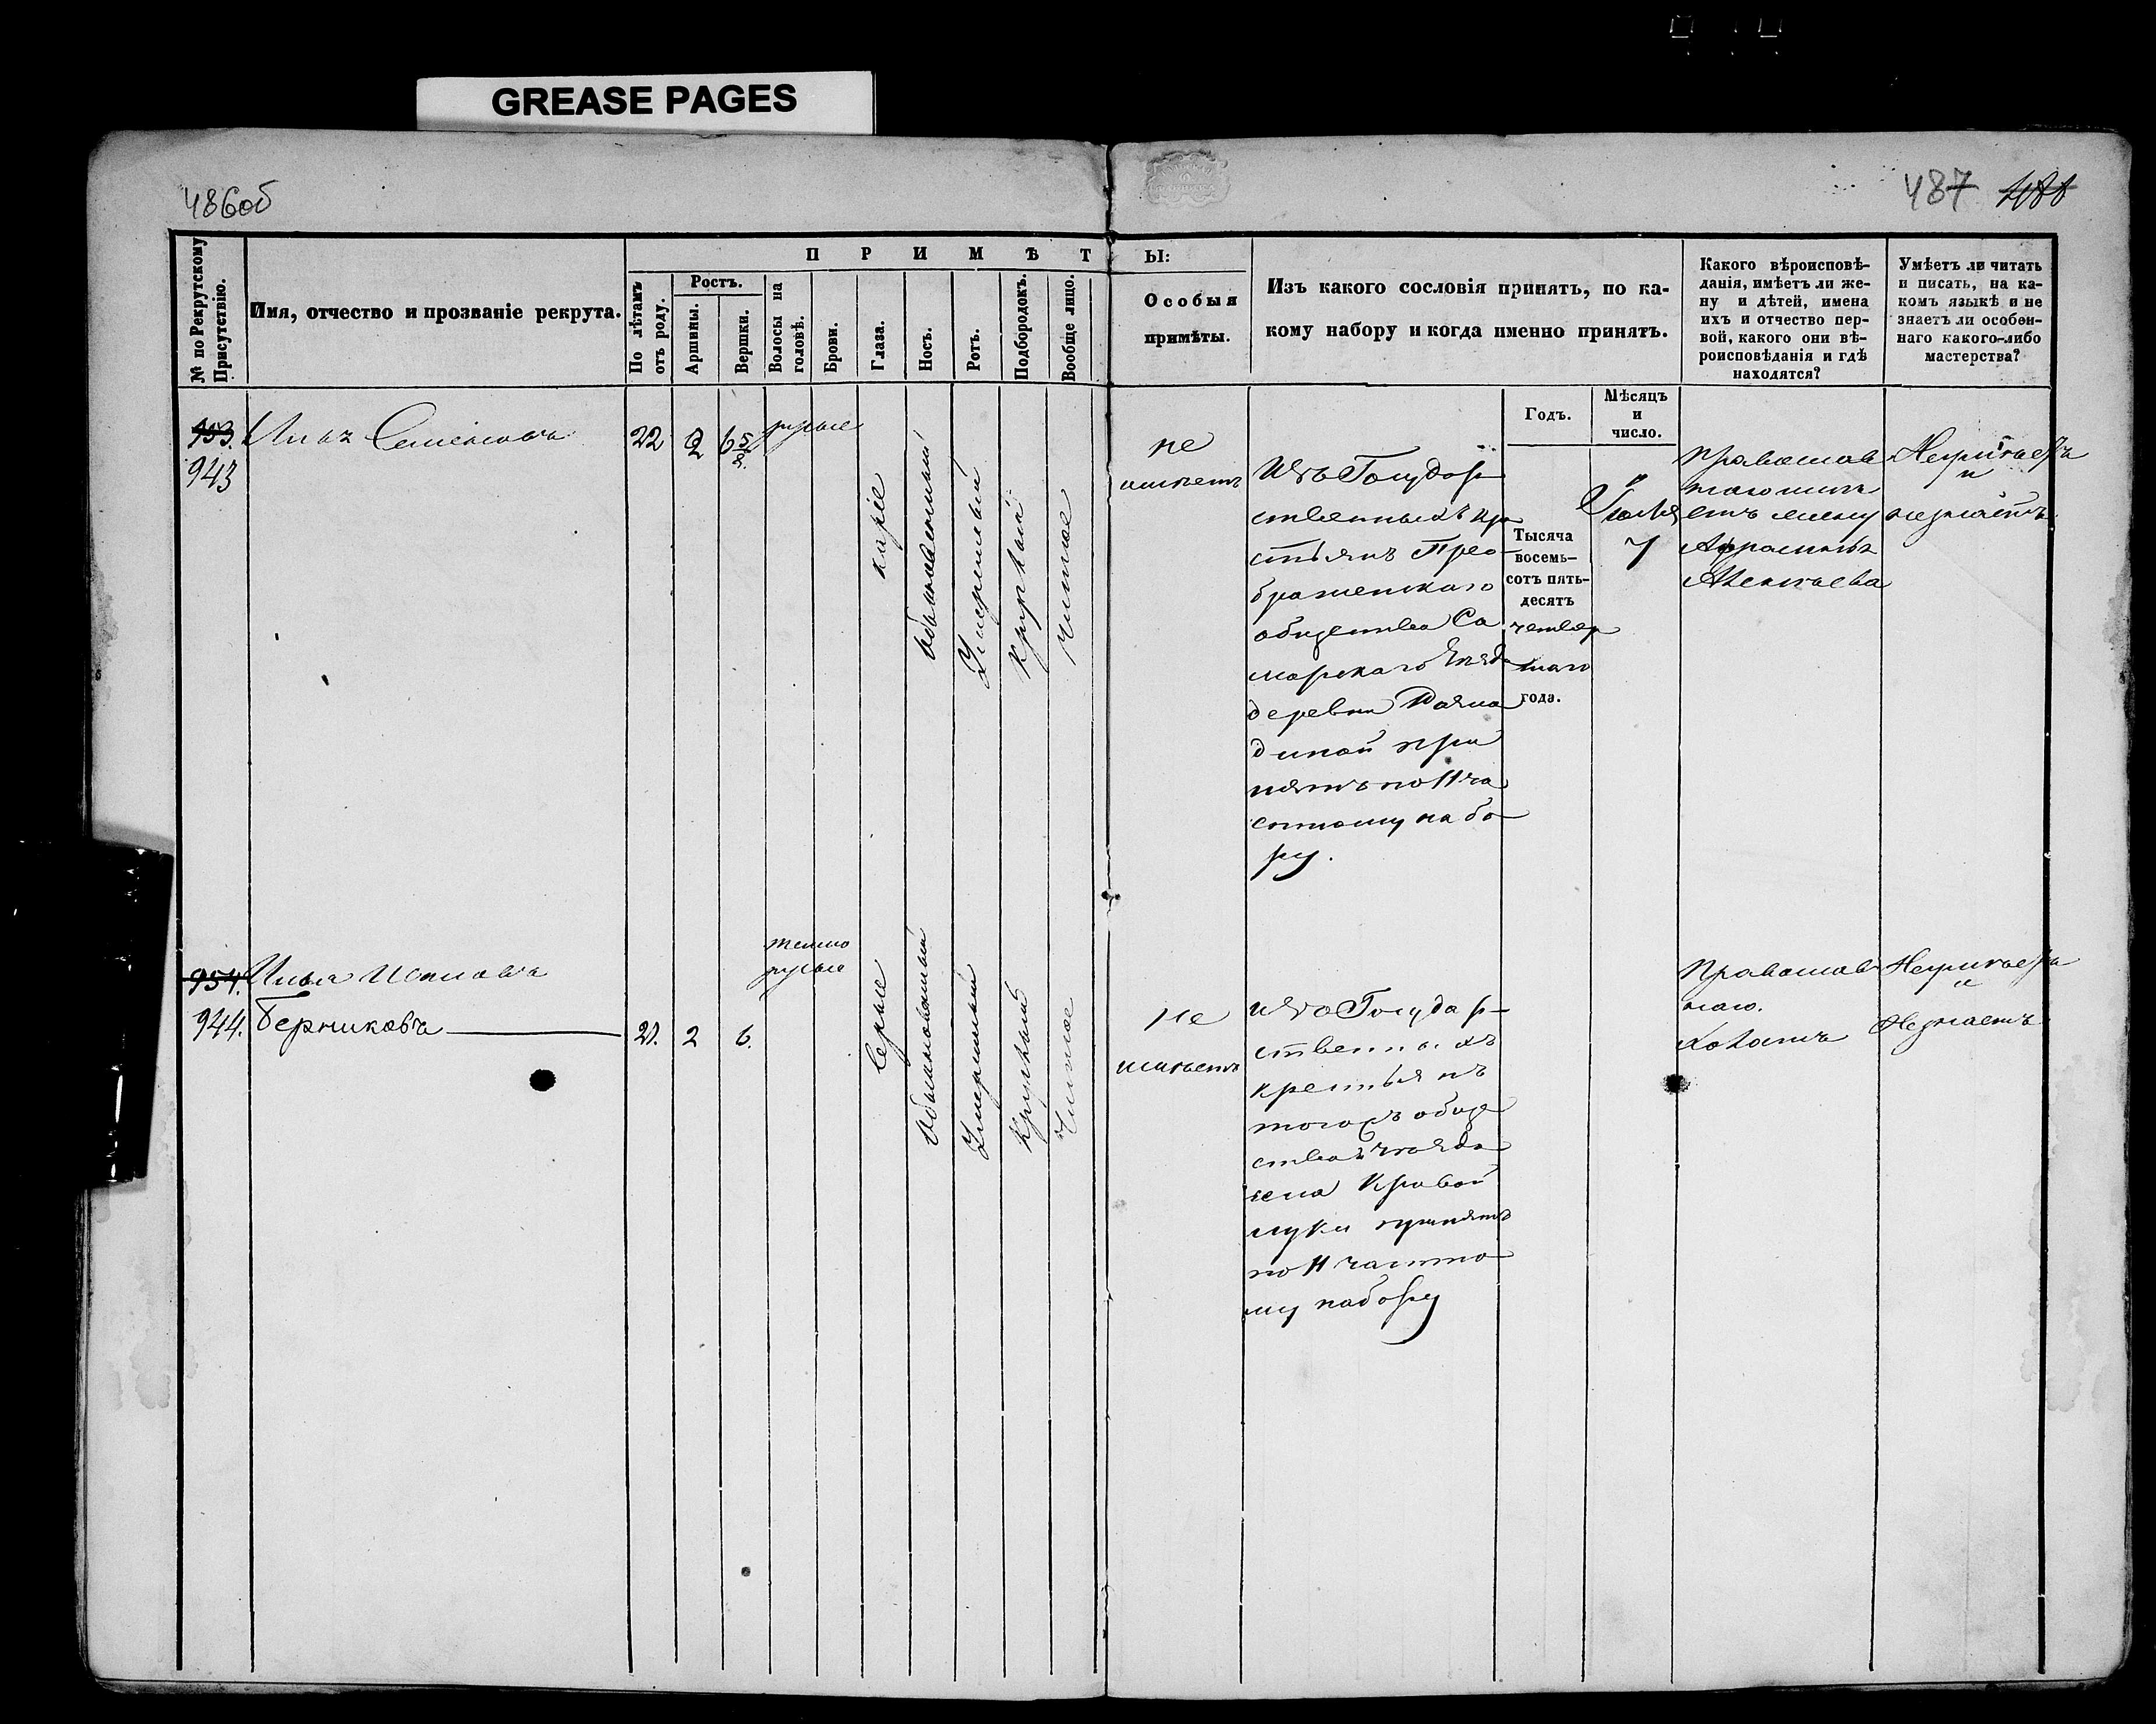 GREASE PAGES
486об
487 488
№ по Рекрутскому Присутствію.
Имя, отчество и прозваніе рекрута.
П Р И М Ѣ Т Ы:
По лѣтамъ отъ роду.
Ростъ.
Аршины.
Вершки.
Волосы на головѣ.
Брови.
Глаза.
Носъ.
Ротъ.
Подбородокъ.
Вообще лицо.
Особыя
примѣты.
Изъ какого сословія принятъ, по ка-
кому набору и когда именно принятъ.
Какого вѣроисповѣ-
данія, имѣетъ ли же-
ну и дѣтей, имена
ихъ и отчество пер-
вой, какого они вѣ-
роисповѣданія и гдѣ
находятся?
Умѣетъ ли читать
и писать, на ка-
комъ языкѣ и не
знаетъ ли особен-
наго какого-либо
мастерства?
Годъ.
Мѣсяцъ
и
число.
953.
943
Семеновъ
22
2
6 5/8.
русые
каріе
обыкновенный
Умеренный
Круглый
чистое
не
имѣетъ
Изъ Государ
ственныхъ кре
стьянъ Прео
браженскаго
общества Са
марскаго Уѣзда
деревни
при
нятъ по 11 ча
стному набо
ру.
Тысяча
восемь-
сотъ пять-
десятъ
четвер
таго
года.
Іюля
7
Православ
наго имѣ
етъ жену
Афросинья
Алексѣева
Неграмотенъ
и
незнаетъ
954.
944.
Илья
Берниковъ
21.
2
6.
темно
русые
Серые
обыкновенный
Умеренный
Круглый
Чистое
Не
имѣетъ
изъ Государ
ственныхъ
крестьянъ
тогожъ обще
ства и уѣзда
села Кривой
луки принятъ
по 11 частно
му набору
Православ
наго.
холостъ
Неграмотенъ
и
Незнаетъ